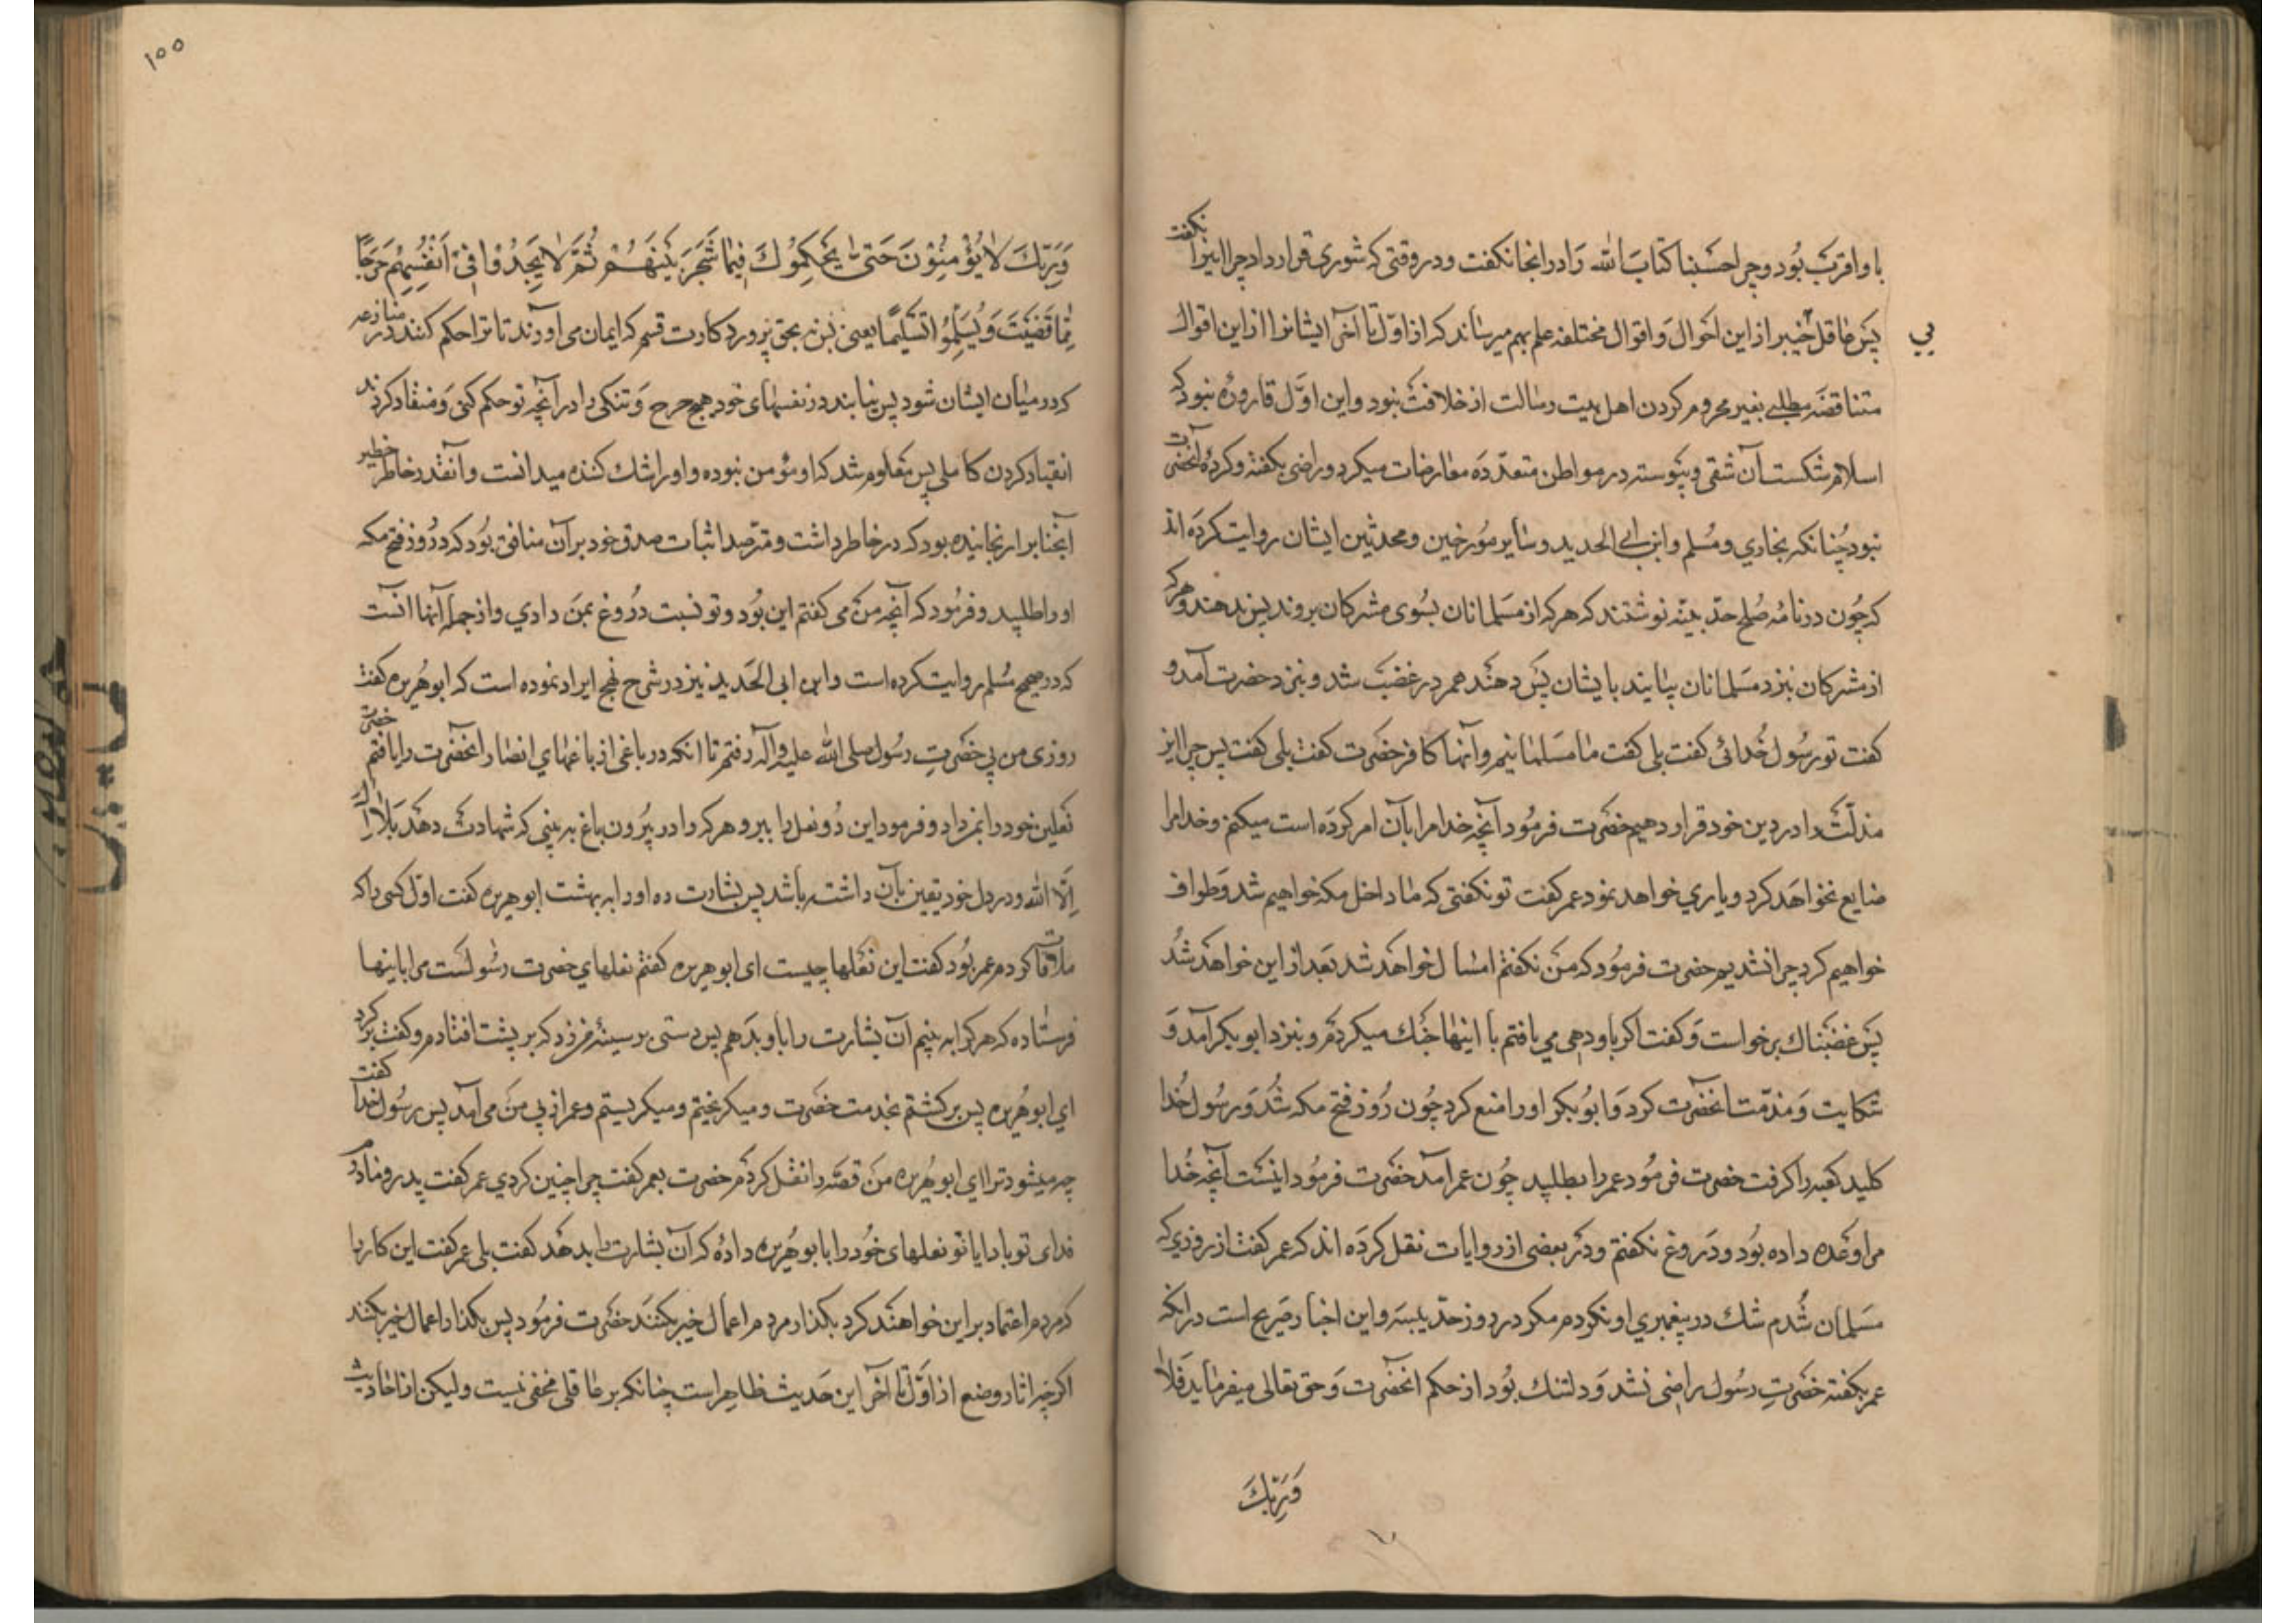 باو اقرب بود و چرا حسبنا کتاب الله را در انجا نکفت و در وقتی که شوری قرار داد چرا اینرا نکفت
پس عاقل خبیر از این احوال و اقوال مختلفه علم بهم میرساند که از اول تا آخر ایشانرا از این اقوال
بی
متناقضه مطلبی بغیر محروم کردن اهل بیت رسالت از خلافت نبود و این اول قاروره نبود که
اسلام شکست آن شقی و پیوسته در مواطن متعدده معارضات میکرد و راضی بکفته و کرده آنحضرت
نبود چنانکه بخاری و مسلم و ابن ابی الحدید و سایر مورخین و محدثین ایشان روایت کرده اند
که چون در نامه صلح حدیبیه نوشتند که هر که از مسلمانان بسوی مشرکان بروند پس ندهند و هر که
از مشرکان بنزد مسلمانان بیایند بایشان پس دهند عمر در غضب شد و بنزد حضرت آمد و
کفت تو رسول خدائی کفت بلی کفت ما مسلمانیم و آنها کافر حضرت کفت بلی کفت پس چرا این
مذلت را در دین خود قرار دهیم حضرت فرمود آنچه خدا مرا بآن امر کرده است میکنم و خدا مرا
ضایع نخواهد کرد و یاری خواهد نمود عمر کفت تو نکفتی که ما داخل مکه خواهیم شد و طواف
خواهیم کرد چرا نشدیم حضرت فرمود که من نکفتم امسال خواهد شد بعد از این خواهد شد
پس غضبناک برخواست و کفت اکر یاوری می یافتم با اینها جنک میکردم و بنزد ابو بکر آمد و
شکایت و مذمت آنحضرت کرد و ابو بکر او را منع کرد چون روز فتح مکه شد و رسول خدا
کلید کعبه را کرفت حضرت فرمود عمر را بطلبید چون عمر آمد حضرت فرمود اینست آنچه خدا
مرا وعده داده بود و دروغ نکفتم و در بعضی از روایات نقل کرده اند که عمر کفت از روزی که
مسلمان شدم شک در پیغمبری او نکردم مکر در روز حدیبیه و این اخبار صریح است در انکه
عمر بکفته حضرت رسول راضی نشد و دلتنک بود از حکم آنحضرت و حق تعالی میفرماید فلا
وربک
۱۵۵
وَرَبِّكَ لَا يُؤْمِنُوْنَ حَتّى يُحَكِّمُوكَ فِيمَا شَجَرَ بَيْنَهُمْ ثُمَّ لَا يَجِدُوْا فِيْ اَنْفُسِهِمْ حَرَجًا
مِمَّا قَضَيْتَ وَيُسَلِّمُوا تَسْلِيمًا یعنی نه بحق پروردکارت قسم که ایمان می آورند تا ترا حکم کنند در منازعه
که در میان ایشان شود پس نیابند در نفسهای خود هیچ حرج و تنکی را در آنچه تو حکم کنی و منقاد کردند
انقیاد کردن کاملی پس معلوم شد که او مؤمن نبوده و او را شک کننده میدانست و آنقدر خاطر خطیر
آنجناب را رنجانیده بود که در خاطر داشت و مترصد اثبات صدق خود بر آن منافق بود که در روز فتح مکه
او را طلبید و فرمود که آنچه من می کفتم این بود و تو نسبت دروغ بمن دادی و از جمله آنها انست
که در صحیح مسلم روایت کرده است و ابن ابی الحدید نیز در شرح نهج ایراد نموده است که ابو هریره کفت
روزی من پی حضرت رسول صلی الله علیه و آله رفتم تا انکه در باغی از باغهای انصار آنحضرت را یافتم حضرت
نعلین خود را بمن داد و فرمود این دو نعل را ببر و هر که را در بیرون باغ به بینی که شهادت دهد بلا اله
الا الله و در دل خود یقین بآن داشته باشد پس بشارت ده او را به بهشت ابو هریره کفت اول کسی را که
ملاقات کردم عمر بود کفت این نعلها چیست ای ابو هریره کفتم نعلهای حضرت رسولست مرا باینها
فرستاده که هر کرا به بینم آن بشارت را باو بدهم پس دستی بر سینه من زد که بر پشت افتادم و کفت بر کرد
ای ابو هریره پس برکشتم بخدمت حضرت و میکریختم و میکریستم و عمر از پی من می آمد پس رسول خدا کفت
چه میشود ترا ای ابو هریره من قصه را نقل کردم حضرت بعمر کفت چرا چنین کردی عمر کفت پدر و مادرم
فدای تو باد ایا تو نعلهای خود را بابو هریره داده که آن بشارت را بدهد کفت بلی عمر کفت این کار را
که مردم اعتماد بر این خواهند کرد بکذار مردم اعمال خیر بکنند حضرت فرمود پس بکذار اعمال خیر بکنند
اکرچه اثار وضع از اول تا آخر این حدیث ظاهر است چنانکه بر عاقلی مخفی نیست ولیکن از احادیث